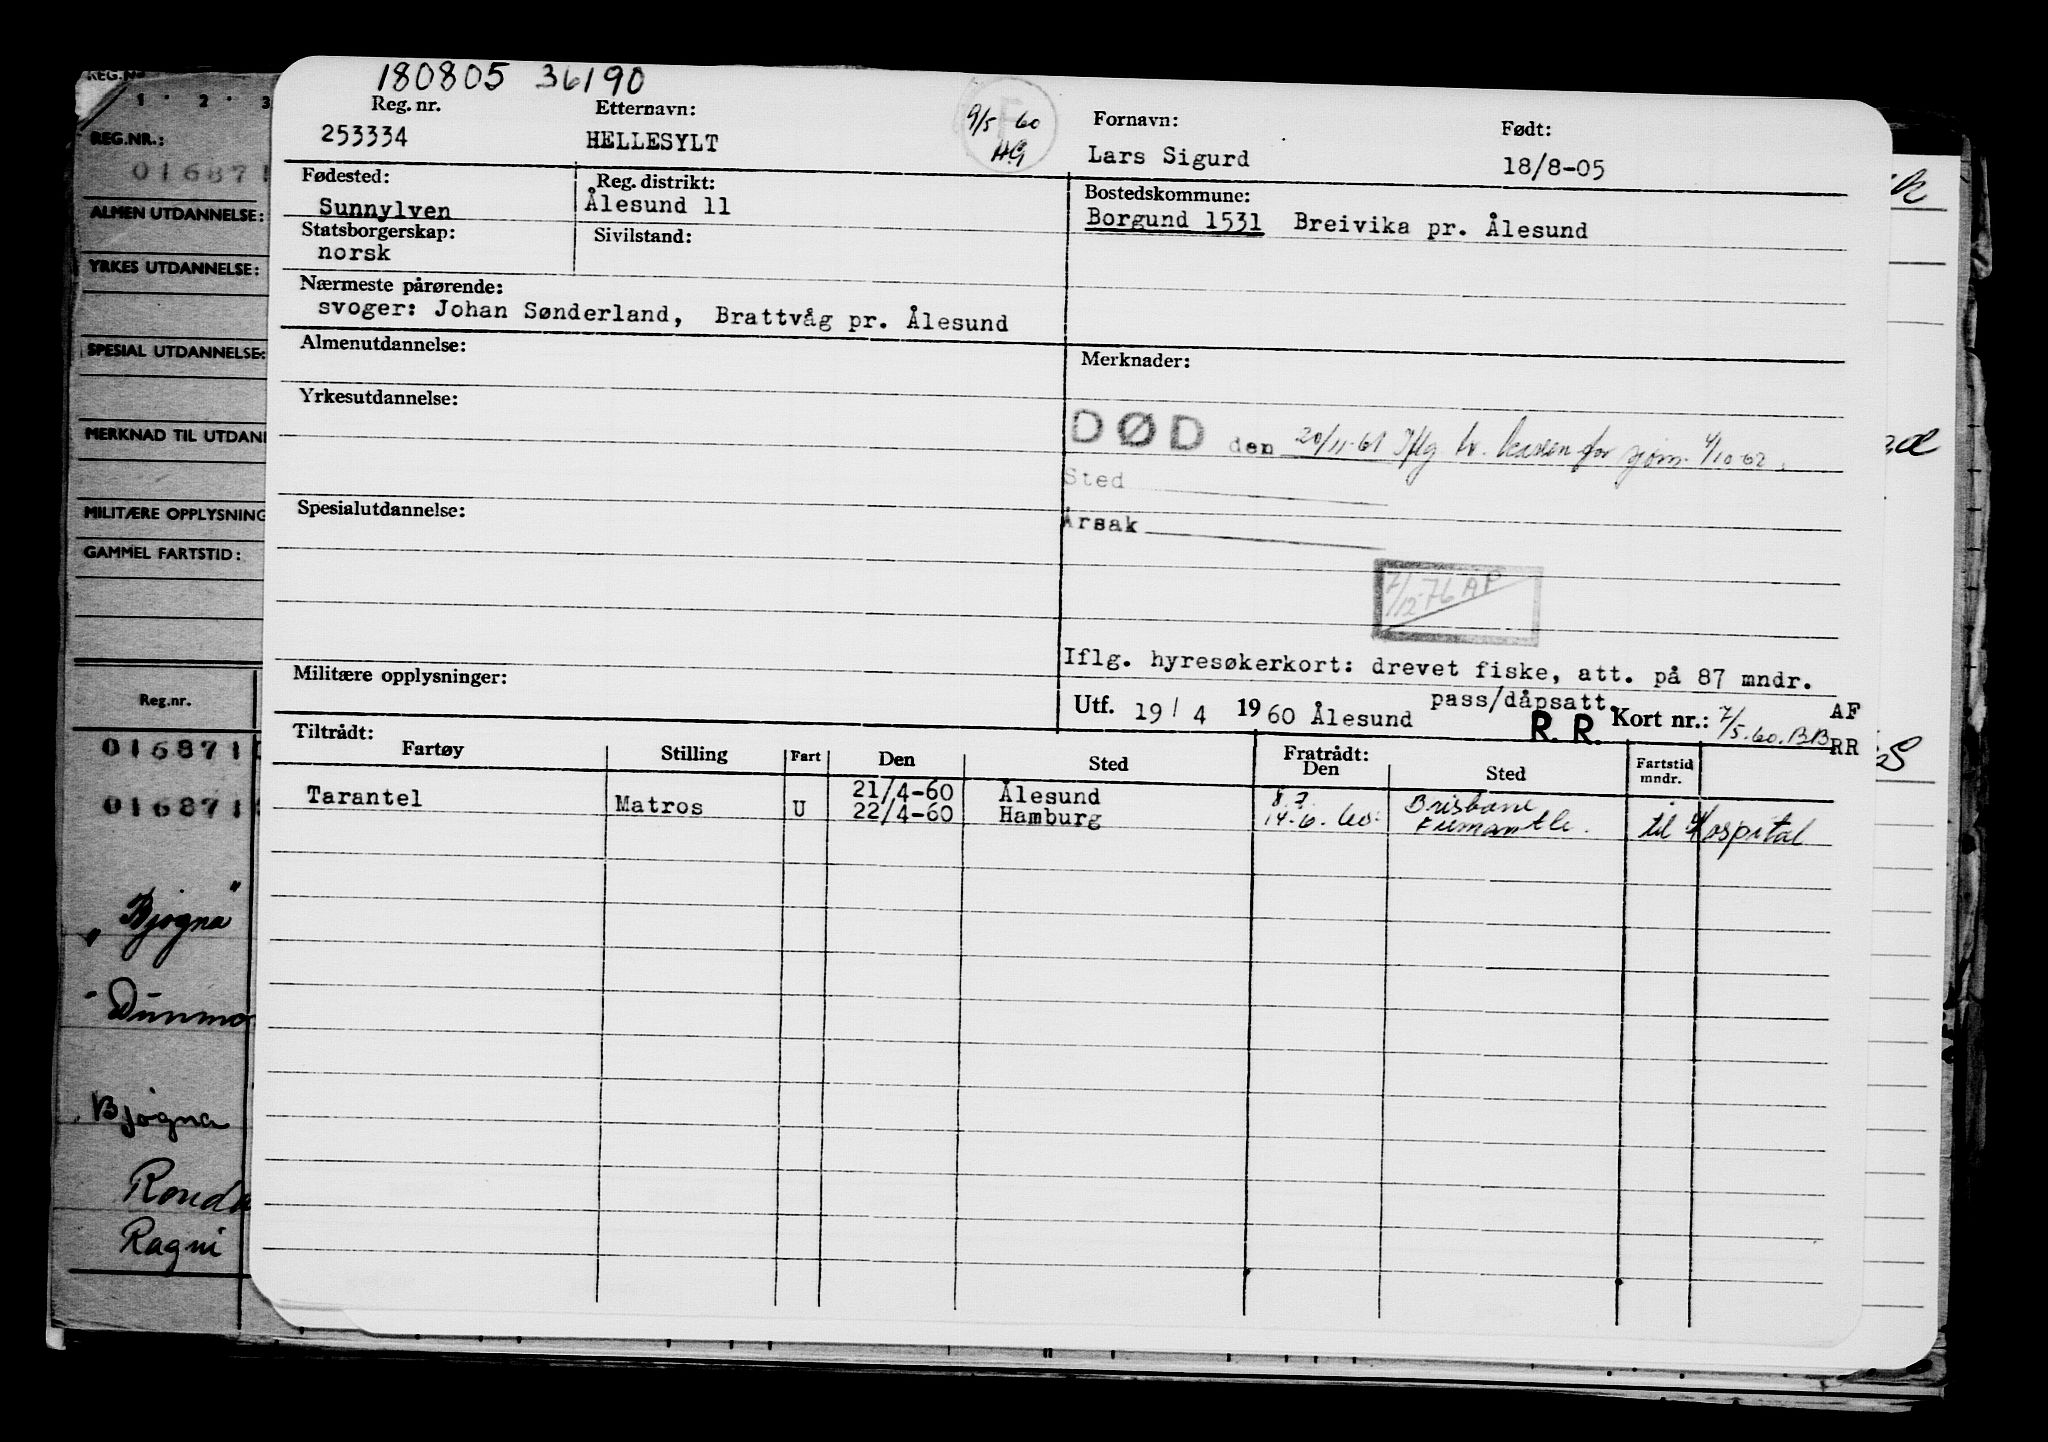 180805 36190
Reg. nr. Etternavn: Fornavn: Født:
253334 HELLESYLT 9/5 60 HG Lars Sigurd 18/8-05
Fødested: Reg. distrikt: Bostedskommune:
Sunnylven Ålesund 11 Borgund 1531 Breivika pr. Ålesund
Statsborgerskap: Sivilstand:
norsk
Nærmeste pårørende:
svoger: Johan Sønderland, Brattvåg pr. Ålesund
Almenutdannelse: Merknader:
Yrkesutdannelse:
DØD den 20/11-61 Iflg br. kassen for sjøm. 4/10-62.
Sted
Spesialutdannelse:
Årsak
7/12-76 AF
Iflg. hyresøkerkort: drevet fiske, att. på 87 mndr.
pass/dåpsatt.
Militære opplysninger:
Utf. 19/4 1960 Ålesund R. R. Kort nr.: 7/5.60. BB AF
RR
Tiltrådt: Fratrådt:
Fartøy Stilling Fart Den Sted Den Sted Fartstid mndr.
21/4-60 Ålesund 8.7. Brisbane
Tarantel Matros U 22/4-60 Hamburg 14-6. 60. Fremantle. til Hospital
REG.NR
1 2 3
REG.NR.:
016871
ALMEN UTDANNELSE:
YRKES UTDANNELSE:
SPESIAL UTDANNELSE:
MERKNAD TIL UTDAN
MILITÆRE OPPLYSNING
GAMMEL FARTSTID:
Reg.nr.
016871
016871
"Bjogna"
"Dunmo
Bjogna
Ronda
Ragni